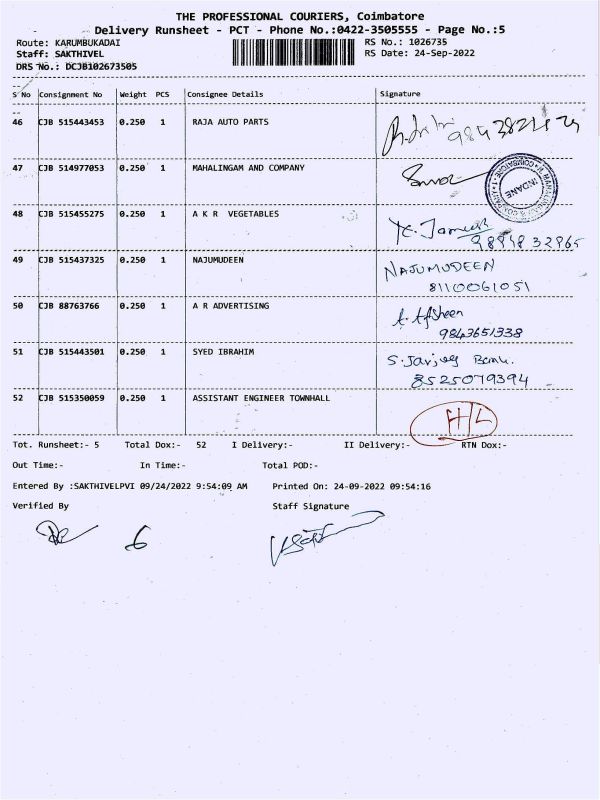 THE PROFESSIONAL COURIERS, Coimbatore
Delivery Runsheet - PCT - Phone No.:0422-3505555 - Page No.:5
Route: KARUMBUKADAI RS No.: 1026735
Staff: SAKTHIVEL RS Date: 24-Sep-2022
DRS No.: DCJB102673505
S No Consignment No Weight PCS Consignee Details Signature
46 CJB 515443453 0.250 1 RAJA AUTO PARTS
47 CJB 514977053 0.250 1 MAHALINGAM AND COMPANY
INDANE
48 CJB 515455275 0.250 1 A K R VEGETABLES
49 CJB 515437325 0.250 1 NAJUMUDEEN NAJUMUDEEN
8110061051
50 CJB 88763766 0.250 1 A R ADVERTISING A. Afsheen
9843651338
51 CJB 515443501 0.250 1 SYED IBRAHIM
8525079394
52 CJB 515350059 0.250 1 ASSISTANT ENGINEER TOWNHALL H/L
Tot. Runsheet:- 5 Total Dox:- 52 I Delivery:- II Delivery:- RTN Dox:-
Out Time:- In Time:- Total POD:-
Entered By :SAKTHIVELPVI 09/24/2022 9:54:09 AM Printed On: 24-09-2022 09:54:16
Verified By Staff Signature